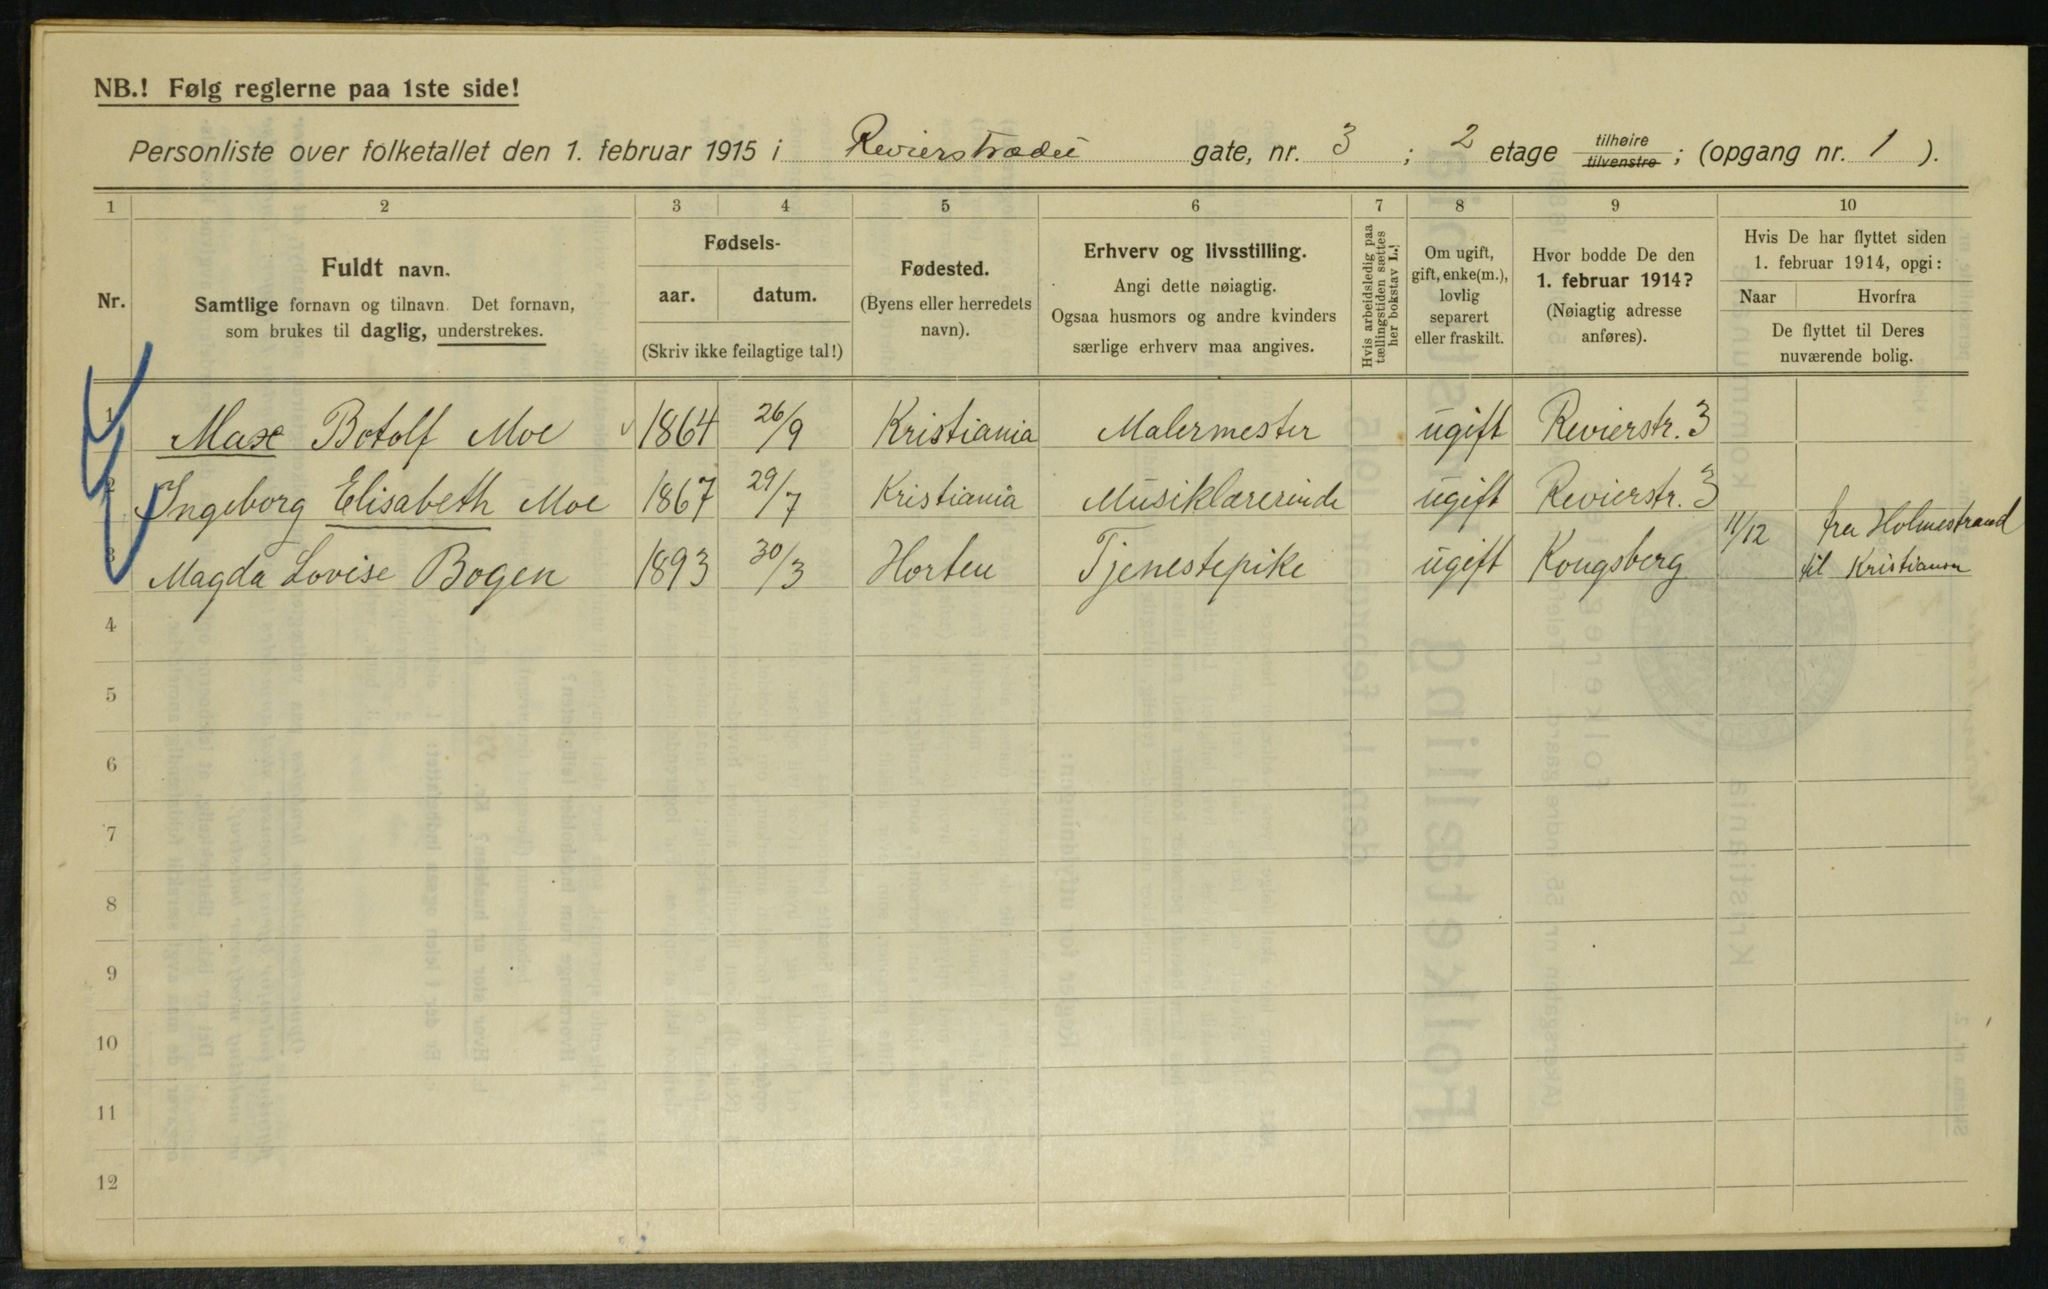 NB.! Følg reglerne paa 1ste side!
Personliste over folketallet den 1. februar 1915 i Revierstrædet gate, nr. 3 ; 2 etage tilhøire tilvenstre ; (opgang nr. 1 ).
1 2 3 4 5 6 7 8 9 10
Nr.
Fuldt navn.
Samtlige fornavn og tilnavn. Det fornavn,
som brukes til daglig, understrekes.
Fødsels-
aar. datum.
(Skriv ikke feilagtige tal!)
Fødested.
(Byens eller herredets
navn).
Erhverv og livsstilling.
Angi dette nøiagtig.
Ogsaa husmors og andre kvinders
særlige erhverv maa angives.
Hvis arbeidsledig paa
tællingstiden sættes
her bokstav L.!
Om ugift,
gift, enke(m.),
lovlig
separert
eller fraskilt.
Hvor bodde De den
1. februar 1914?
(Nøiagtig adresse
anføres).
Hvis De har flyttet siden
1. februar 1914, opgi:
Naar Hvorfra
De flyttet til Deres
nuværende bolig.
1 Max Botolf Moe 1864 26/9 Kristiania Malermester ugift Revierstr. 3
2 Ingeborg Elisabeth Moe 1867 29/7 Kristiania Musiklærerinde ugift Revierstr. 3
3 Magda Lovise Bogen 1893 30/3 Horten Tjenestepike ugift Kongsberg 11/12 fra Holmestrand
til Kristiania
4
5
6
7
8
9
10
11
12